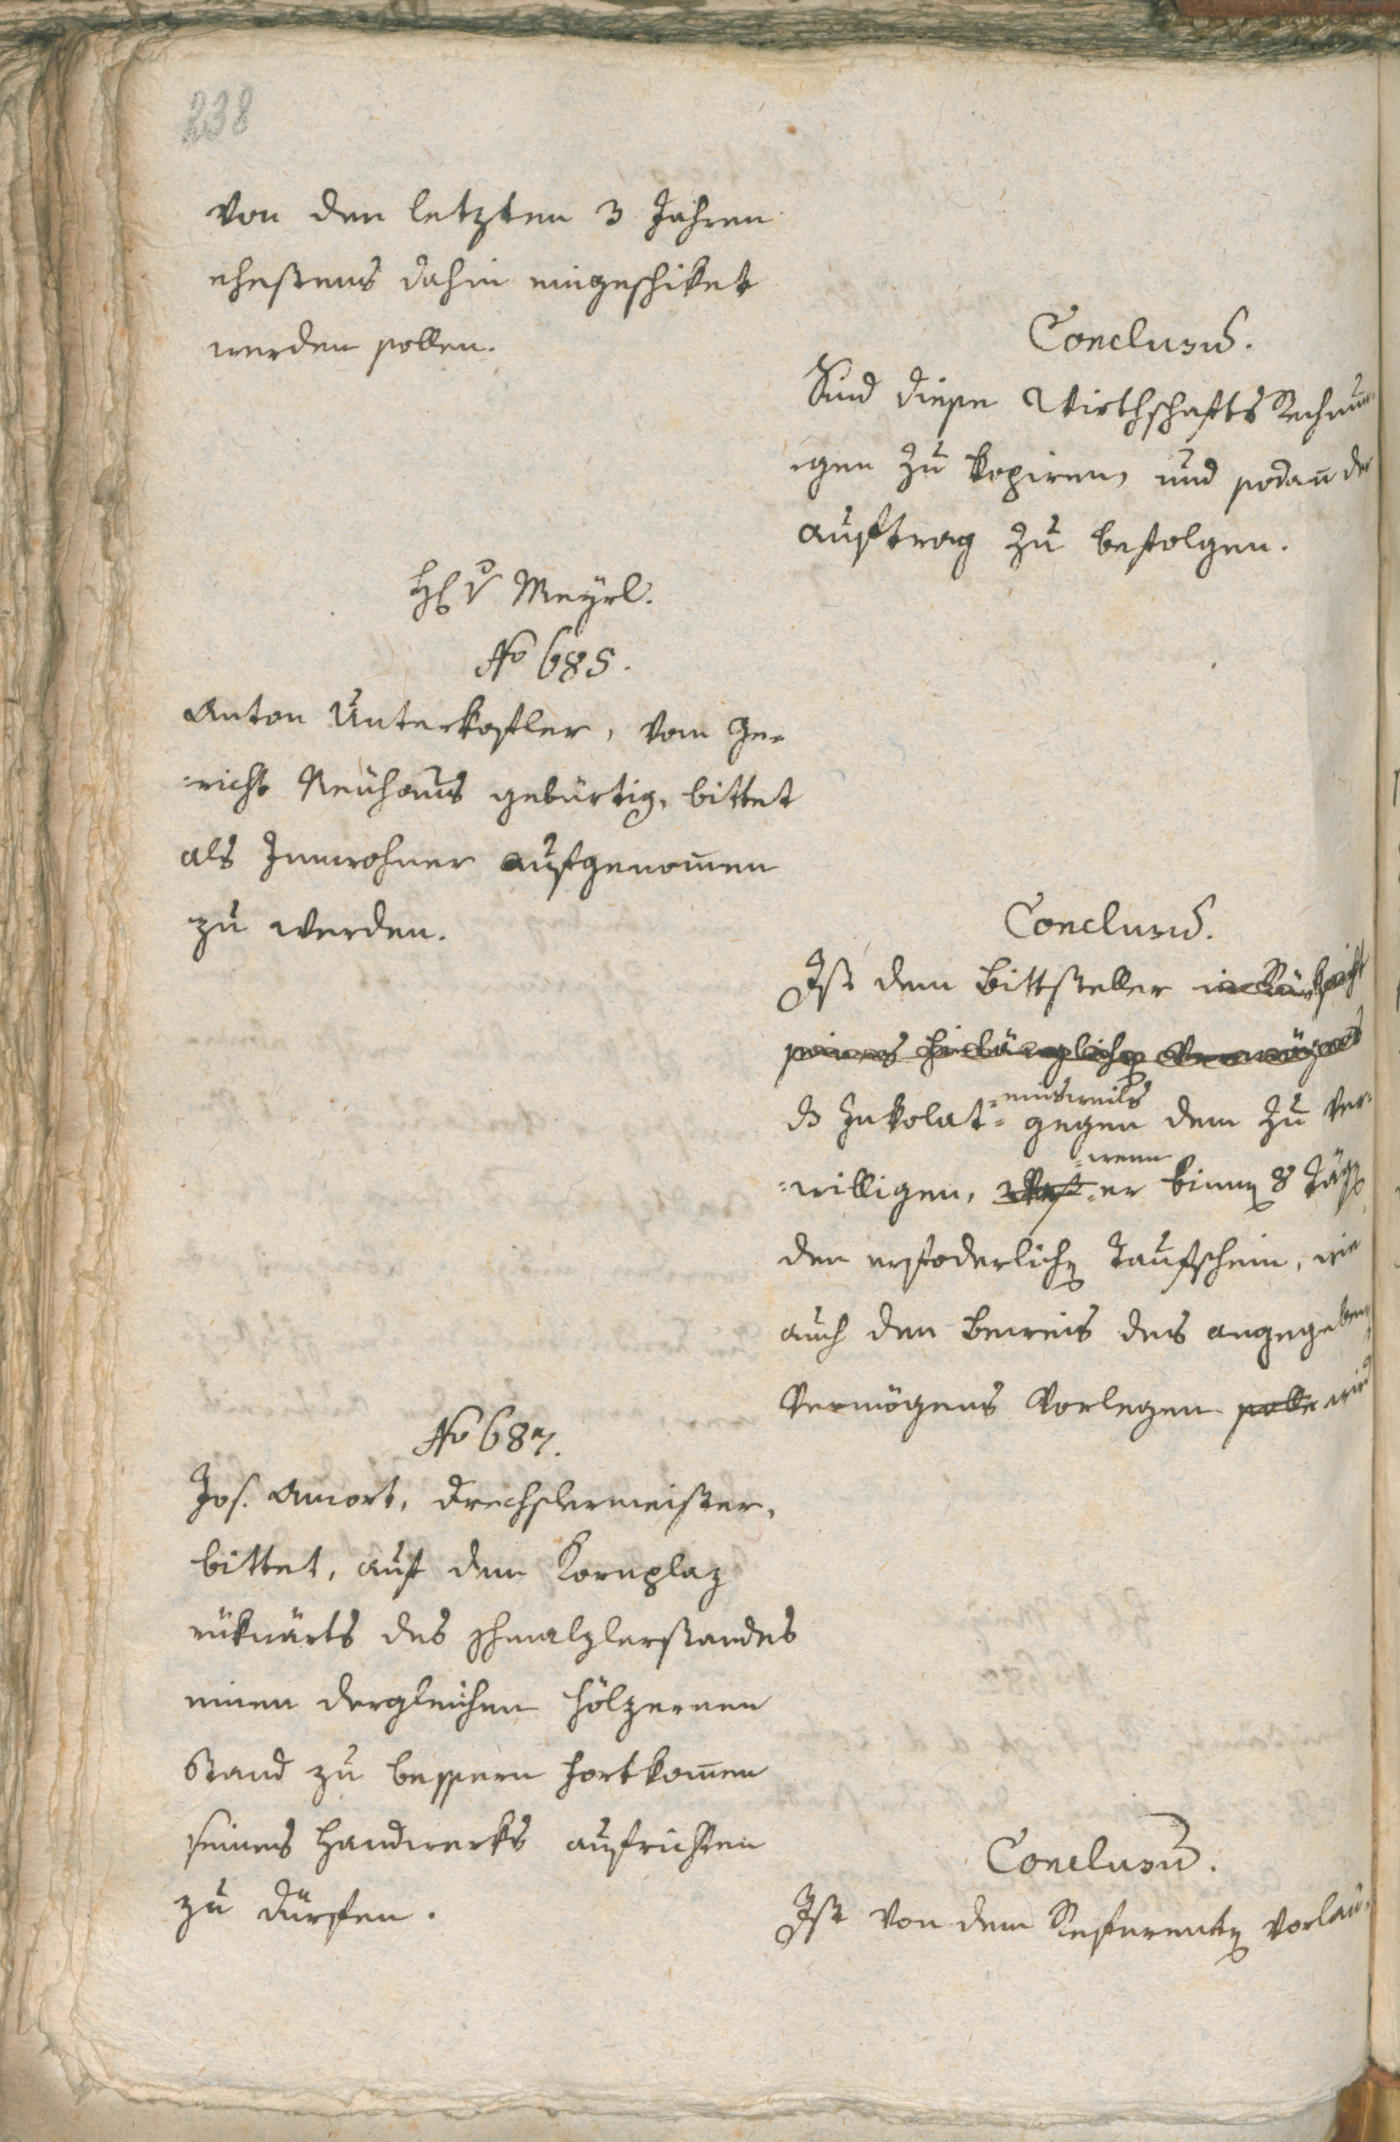 238
von den letzten 3 Jahren
ehestens dahin eingeschiket
werden sollen.
Conclusū.
Sind diese Wirthschafts Rechnun¬
gen zu kopiren, und sodañ der
Auftrag zu befolgen.
H v Meÿrl.
No 685.
Anton Unterkofler, vom Ge¬
richt Neuhaus gebürtig, bittet
als Innwohner aufgenom̄en
zu werden.
Conclusū.
Ist dem Bittsteller in Rüksicht
seines hinlänglichen Vermögens
das Inkolat einsweils gegen dem zu ver¬
willigen, wenn er binnen 8 Täg
den erfoderlichen Taufschein, wie
auch den Beweis des angegebenen
Vermögens vorlegen solle wird
No 687.
Jos. Amort, Drechslermeister,
bittet, auf dem Kornplaz
rükwärts des Schmalzlerstandes
einen dergleichen hölzernen
Stand zu bessern Fortkom̄en
seines Handwerks aufrichten
zu dürfen.
Conclusū.
Ist von dem Referenten vorläu¬